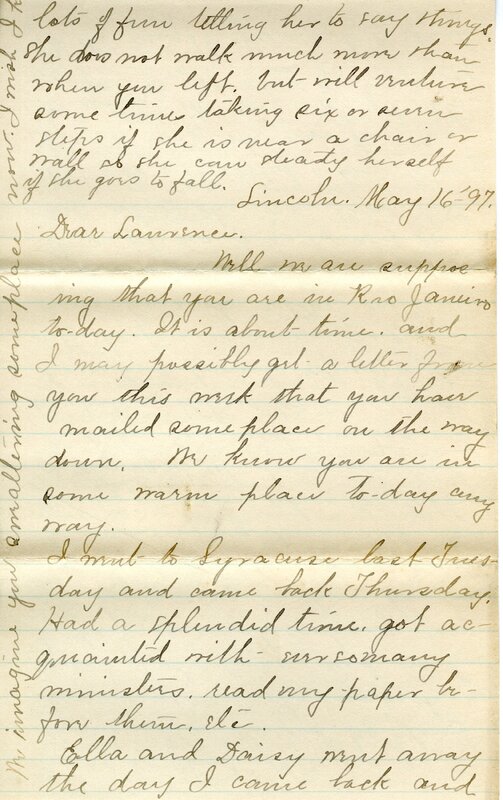 lots of fun telling her to say things.
She does not walk much more than
when you left, but will venture
some time taking six or seven
steps if she is near a chair or
wall so she can steady herself
if she goes to fall.
Lincoln. May 16-'97.
Dear Lawrence.
Well we are suppos-
ing that you are in Rio Janeiro
to-day. It is about time. and
I may possibly get a letter from
you this week that you have
mailed some place on the way
down. We know you are in
some warm place to-day any
way.
I went to Syracuse last Tues-
day and came back Thursday.
Had a splendid time. got ac-
quainted with ever so many
ministers. read my paper be-
fore them, etc.
Ella and Daisy went away
the day I came back and
We imagine you sweltering someplace now. I wish I